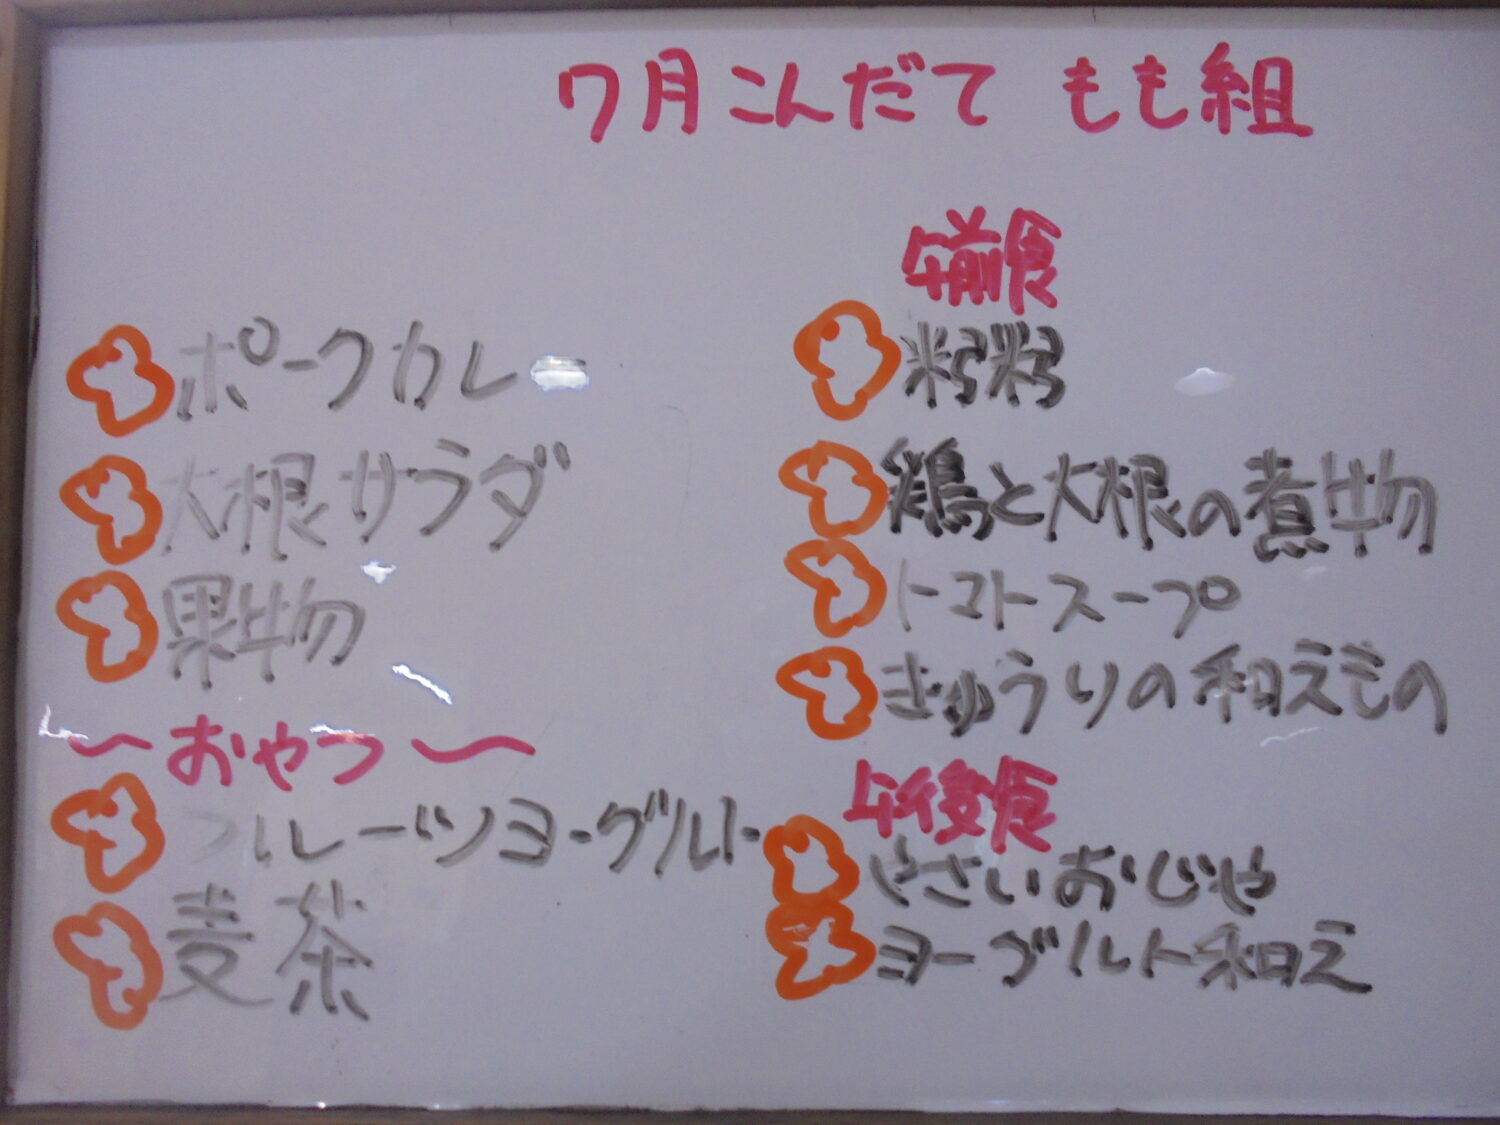 7月こんだて もも組
ポークカレー
大根サラダ
果物
～おやつ～
フルーツヨーグルト
麦茶
午前食
鶏と大根の煮物
トマトスープ
きゅうりの和えもの
午後食
やさいおじや
ヨーグルト和え